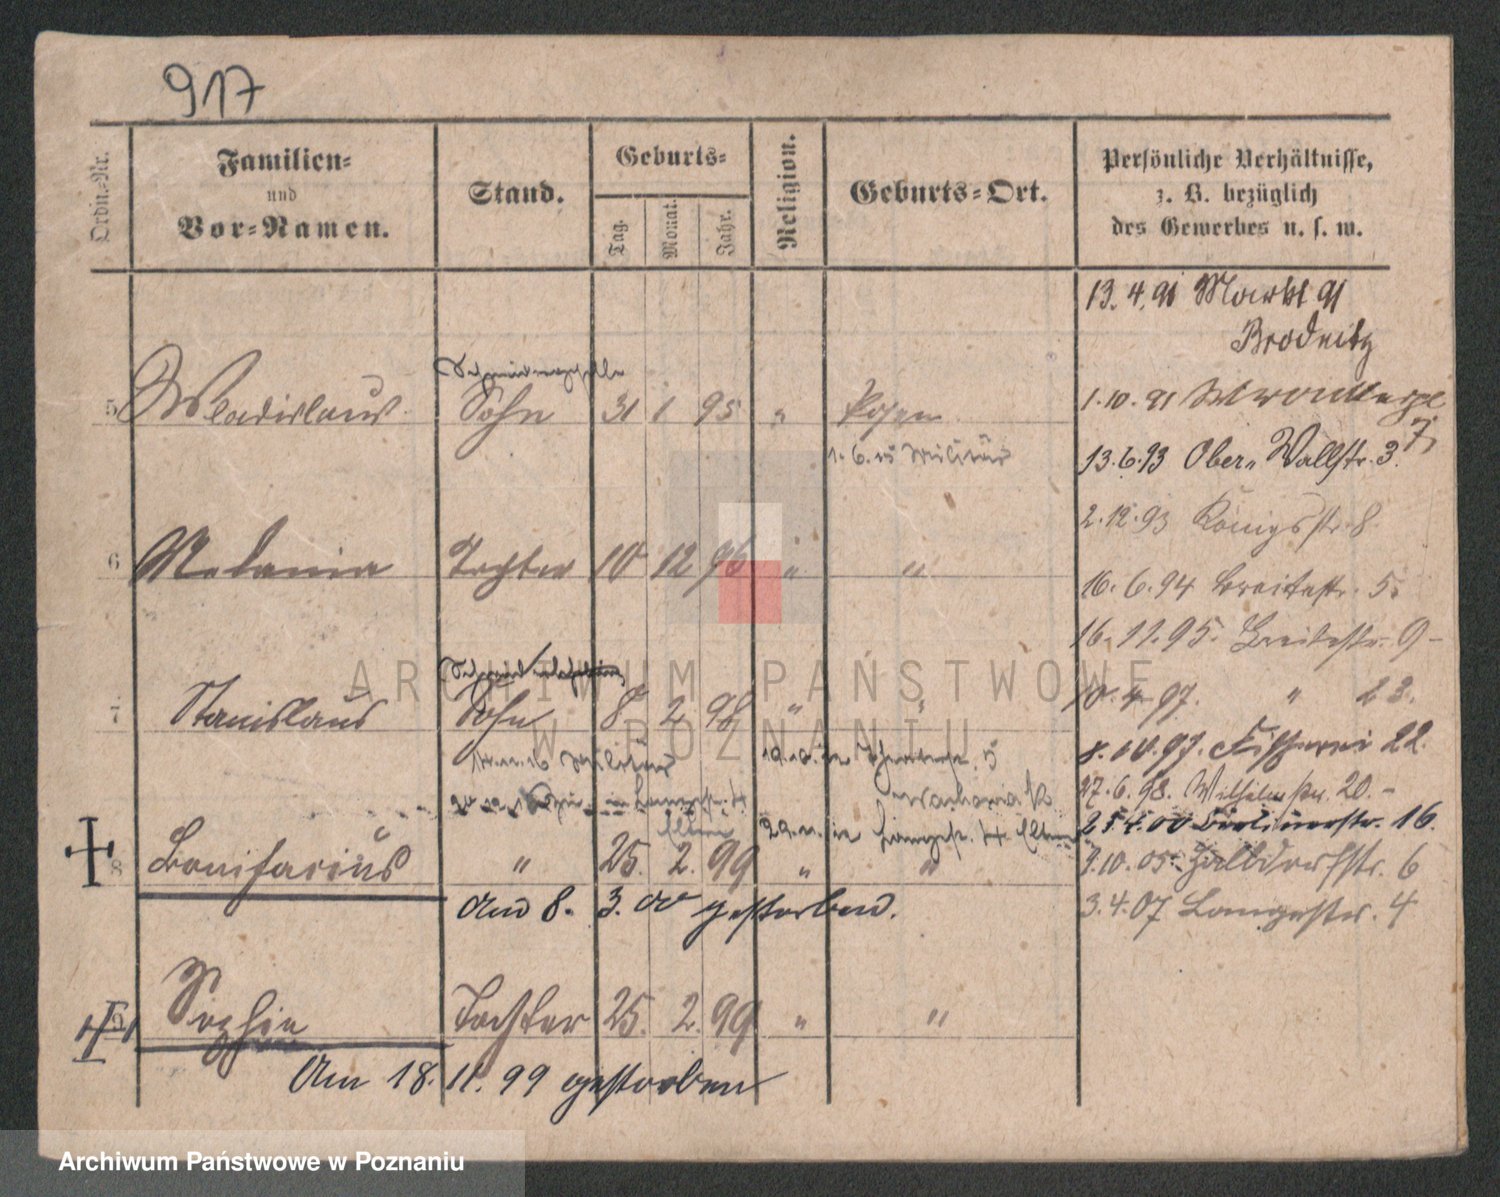 917
Ordn.-Nr.
Familien-
und
Vor-Namen.
Stand.
Geburts-
Tag.
Monat.
Jahr.
Religion.
Geburts-Ort.
Persönliche Verhältnisse,
z. B. bezüglich
des Gewerbes u. s. w.
13. 4. 91 Markt 91
Brodnitz
5 Wladislaus Sohn 31 1 95 " Posen
1. 10. 91
7,
1. 6. 15 Militär
13. 6. 93 Ober Wallstr. 3.
2. 12. 93 Königsstr. 8
6 Melania Tochter 10 12 96 " "
16. 6. 94 Breitestr. 5.
16. 11. 95. Breitestr. 9
7 Stanislaus Sohn 8 2 98 " "
10. 4. 97. " 23.
8. 10. 97. Fischerei 22.
Militär
27. 6. 98. Wilhelmstr. 20.
25. 4. 00 Berlinerstr. 16.
Eltern
8 Bonifacius " 25. 2. 99 " "
3. 10. 05. Halbdorfstr. 6
Am 8. 3. 00 gestorben.
3. 4. 07 Langestr. 4
9 Sophie Tochter 25. 2. 99 " "
Am 18. 11. 99 gestorben
ARCHIWUM PAŃSTWOWE
W POZNANIU
Archiwum Państwowe w Poznaniu